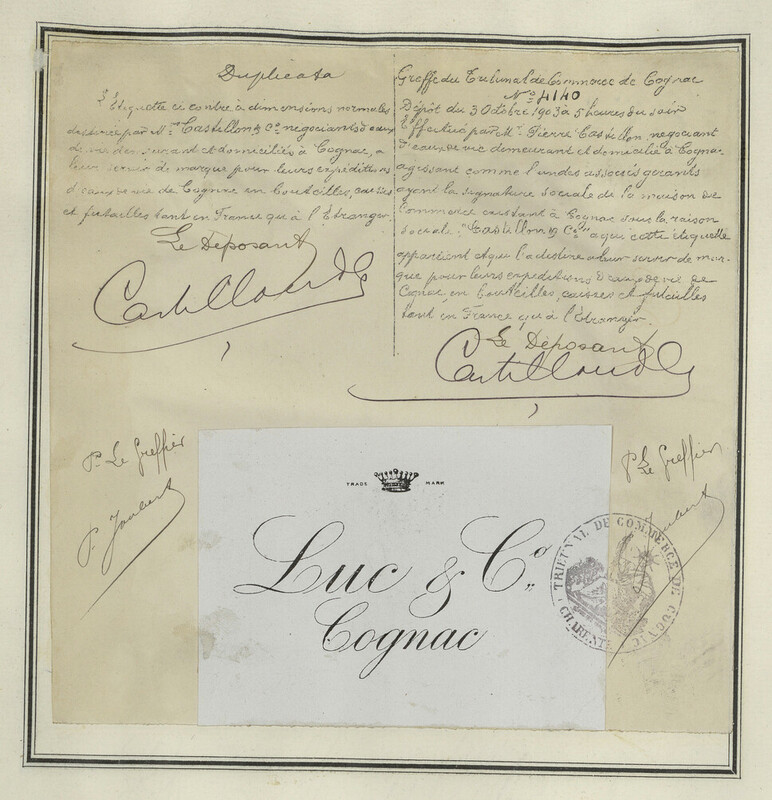 Duplicata
L'Étiquette ci contre à dimensions normales
destinée par M.rs Castillon & Co. negociants d'eaux
de vie demeurant et domiciliés à Cognac, a
leur servir de marque pour leurs expéditions
d'eaux de vie de Cognac en bouteilles, caisses
et futailles tant en France qu'à l'Étranger.
Le Déposant
Castillon & Co
Greffe du Tribunal de Commerce de Cognac
No. 4140
Dépôt du 3 Octobre 1903 à 5 heures du soir
Effectué par M. Pierre Castillon, negociant
d'eaux de vie demeurant et domicilié à Cognac
agissant comme l'un des associés gerants
ayant la signature sociale de la maison de
Commerce existant à Cognac sous la raison
sociale "Castillon & Co." a qui cette étiquette
appartient et qui l'a destine a leur servir de mar-
que pour leurs expéditions d'eaux de vie de
Cognac, en bouteilles, caisses et futailles
tant en France qu'à l'Étranger.
Le Déposant
Castillon & Co
P. Le Greffier
P. Joubert
P. Le Greffier
TRADE MARK
Luc & Co.
Cognac
TRIBUNAL DE COMMERCE DE COGNAC
CHARENTE